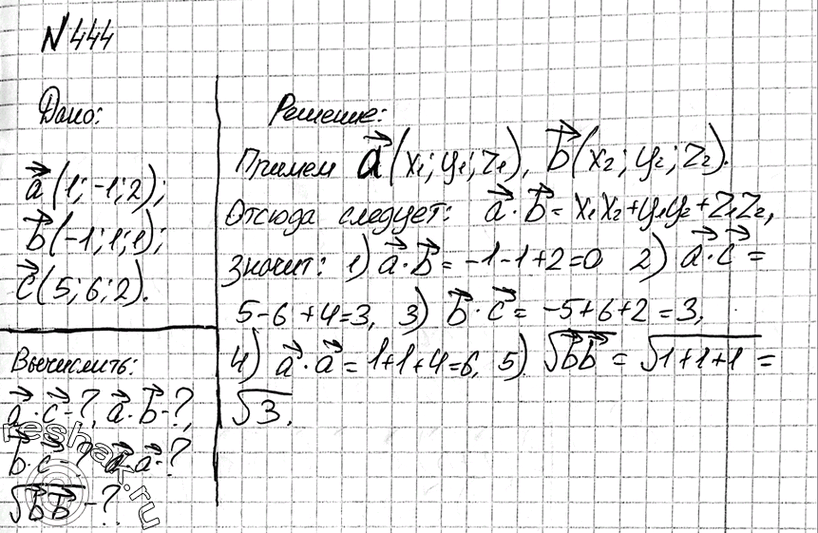 N 444
Дано:
a⃗(1; -1; 2);
b⃗(-1; 1; 1);
c⃗(5; 6; 2).
Вычислить:
a⃗·c⃗-?, a⃗·b⃗-?,
b⃗·c⃗-? a⃗·a⃗-?
√b⃗b⃗ -?
Решение:
Примем a⃗(x₁; y₁; z₁), b⃗(x₂; y₂; z₂).
Отсюда следует: a⃗·b⃗ = x₁x₂+y₁y₂+z₁z₂,
значит: 1) a⃗·b⃗ = -1-1+2=0 2) a⃗·c⃗ =
5-6+4=3, 3) b⃗·c⃗ = -5+6+2=3,
4) a⃗·a⃗ = 1+1+4=6, 5) √b⃗b⃗ = √1+1+1 =
√3.
reshak.ru